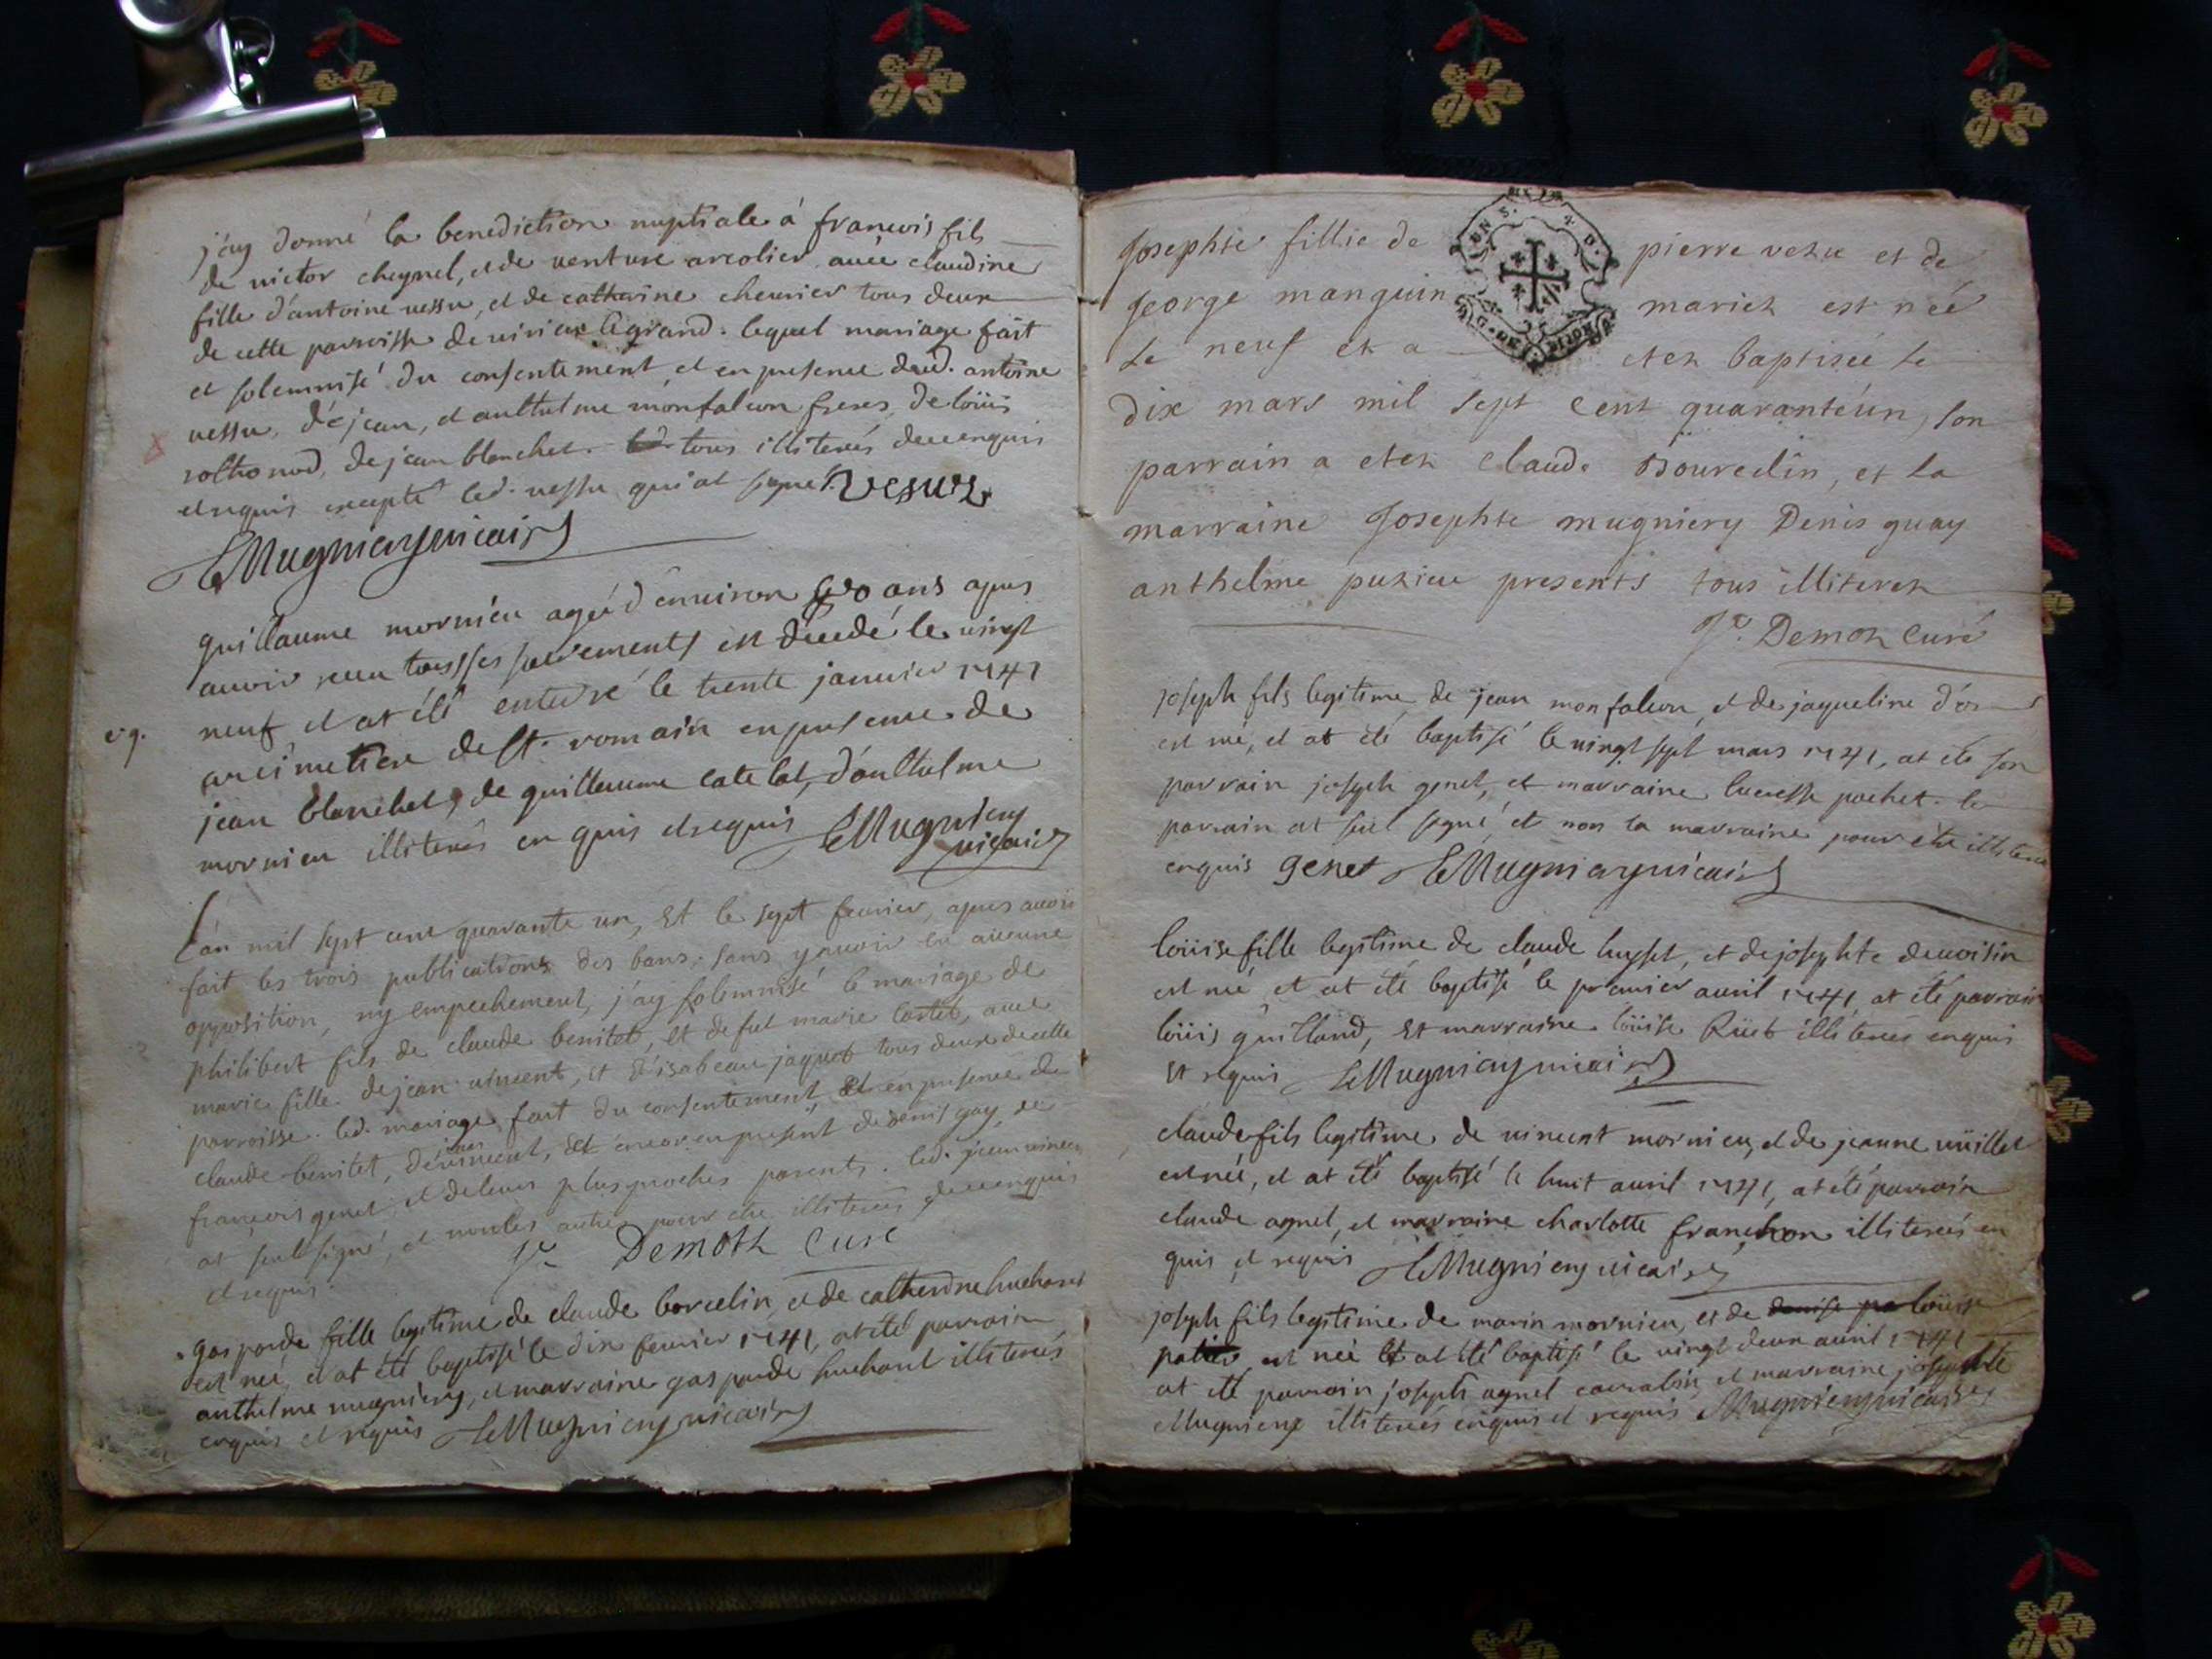 j'ay donné la benediction nuptiale á francois fils
de victor cheynel, et de venture arcolier avec claudine
fille d'antoine vessu, et de catherine chevrier tous deux
de cette parroisse de virieu le grand. lequel mariage fait
et solemnisé du consentement, et en presence dud. antoine
vessu, de jean, et anthelme monfalcon freres, de loüis
de jean blanchet. tous illiterés deuenquis
et requis excepté led. vessu qui at signé. vesuz
Mugniery vicaire
guillaume mornieu agé d'environ ans apres
avoir receu tous ses sacrements est decedé le vingt
neuf et at été enterré le trente janvier 1741
au cimetiere de st. romain en presence de
jean blanchet, de guillaume catelat, d'anthelme
mornieu illiterés enquis et requis Mugniery
vicaire
L'an mil sept cent quarante un, et le sept fevrier, apres avoir
fait les trois publications des bans, sans y avoir eu aucune
opposition, ny empechement, j'ay solemnisé le mariage de
philibert fils de claude benitet, et de fut marie cartet, avec
marie fille de jean vincent, et d'isabeau jaquet tous deux de cette
parroisse. led. mariage fait du consentement, et en presence de
claude benitet, de jean vincent, et encor en present de denis gay, de
françois genet, et de leurs plus proches parents. led. jean vincent
at seul signé, et non les autres pour etre illiterés deuenquis
et requis. Demoth Curé
gasparde fille legitime de claude borcelin, et de catherine huchard
est née, et at été baptisé le dix fevrier 1741, at été parrain
anthelme mugniery, et marraine gasparde huchard illiterés
enquis et requis Mugniery vicaire
Josephte fillie de pierre vezu et de
george manguin mariez est née
le neuf et a etez baptiseé le
dix mars mil sept cent quarantéun, son
parrain a etez claude Bourcelin, et la
marraine Josephte mugniery Denis guay
anthelme puzieu presents tous illiterez
Demoz Curé
joseph fils legitime de jean monfalcon, et de jaqueline d'or
est né, et at été baptisé le vingt sept mars 1741, at été son
parrain joseph genet, et marraine lucresse pochet. le
parrain at seul signé, et non la marraine pour etre illiteree
enquis genet Mugniery vicaire
loüise fille legitime de claude huget, et de josephte devoisin
est né, et at été baptisé le premier avril 1741, at été parrain
loüis guilland, et marraine loüise Rüet illiterés enquis
et requis Mugniery vicaire
claude fils legitime de vincent mornieu, et de jeanne vüillet
est né, et at été baptisé le huit avril 1741, at été parrain
claude agnel, et marraine charlotte franchon illiterés en
quis, et requis Mugniery vicaire
joseph fils legitime de marin mornieu, et de loüise
est né et at été baptisé le vingt deux avril 1741
at été parrain joseph agnel et marraine josephte
Mugniery illiterés enquis et requis Mugniery vicaire